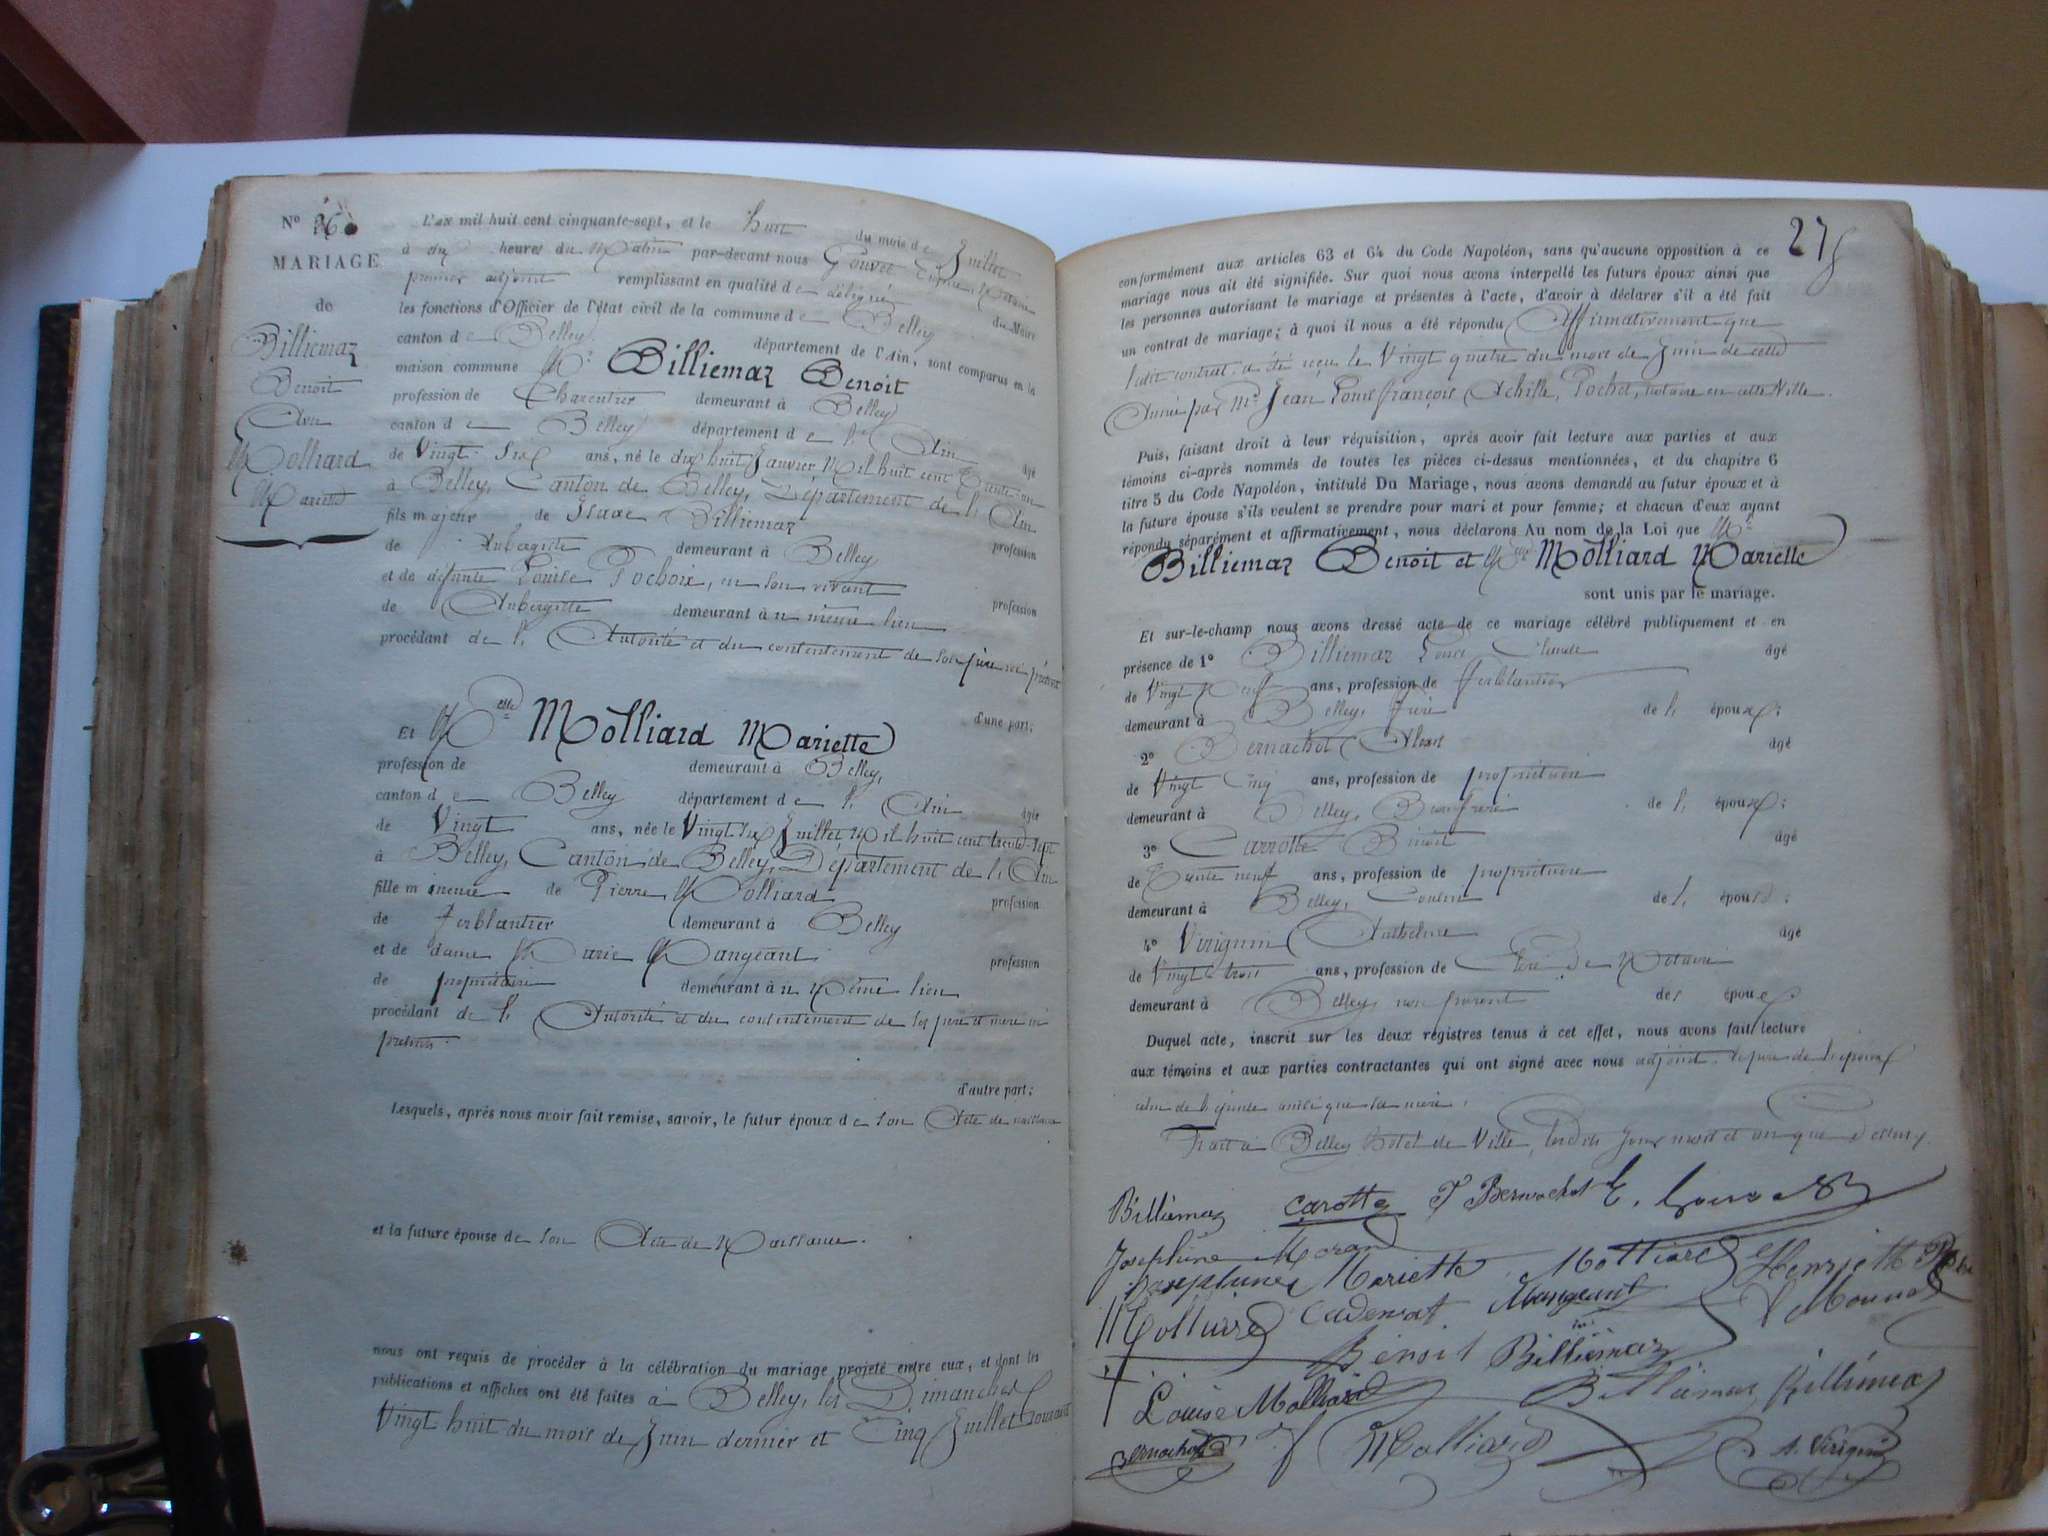 N° 26
MARIAGE
de
Billiemaz
Benoit
Avec
Molliard
Mariette
L'an mil huit cent cinquante-sept, et le huit du mois de Juillet
à dix heures du Matin par-devant nous Gouvet Notaire
premier adjoint remplissant en qualité de délégué du Maire
les fonctions d'Officier de l'état civil de la commune de Belley
canton de Belley département de l'Ain, sont comparus en la
maison commune Mr Billiemaz Benoit
profession de Charcutier demeurant à Belley
canton de Belley département de l'Ain âgé
de Vingt-Six ans, né le dix huit Janvier Mil huit cent trente-un
à Belley, Canton de Belley, Département de l'Ain
fils majeur de Isaac Billiemaz profession
de Aubergiste demeurant à Belley
et de défunte Louise Pochoix, en son vivant profession
de Aubergiste demeurant au même lieu
procédant de l'Autorité et du contentement de son père ici présent
d'une part;
Et Melle Molliard Mariette
profession de demeurant à Belley,
canton de Belley département de l'Ain âgée
de Vingt ans, née le Vingt Six Juillet Mil huit cent trente-sept
à Belley, Canton de Belley, Département de l'Ain
fille mineure de Pierre Molliard profession
de Ferblantier demeurant à Belley
et de dame Marie Mangeant profession
de propriétaire demeurant au Même lieu
procédant de l'Autorité et du contentement de ses père et mère ici
présents.
d'autre part;
Lesquels, après nous avoir fait remise, savoir, le futur époux de son Acte de naissance
et la future épouse de son Acte de Naissance.
nous ont requis de procéder à la célébration du mariage projeté entre eux, et dont les
publications et affiches ont été faites à Belley, les Dimanches
Vingt huit du mois de Juin dernier et Cinq Juillet Courant
27
conformément aux articles 63 et 64 du Code Napoléon, sans qu'aucune opposition à ce
mariage nous ait été signifiée. Sur quoi nous avons interpellé les futurs époux ainsi que
les personnes autorisant le mariage et présentes à l'acte, d'avoir à déclarer s'il a été fait
un contrat de mariage; à quoi il nous a été répondu Affirmativement que
ledit contrat a été reçu le Vingt quatre du mois de Juin de cette
Année par Me Jean Louis françois Achille Pochet, notaire en cette Ville.
Puis, faisant droit à leur réquisition, après avoir fait lecture aux parties et aux
témoins ci-après nommés de toutes les pièces ci-dessus mentionnées, et du chapitre 6
titre 5 du Code Napoléon, intitulé Du Mariage, nous avons demandé au futur époux et à
la future épouse s'ils veulent se prendre pour mari et pour femme; et chacun d'eux ayant
répondu séparément et affirmativement, nous déclarons Au nom de la Loi que Mr
Billiemaz Benoit et Melle Molliard Mariette
sont unis par le mariage.
Et sur-le-champ nous avons dressé acte de ce mariage célébré publiquement et en
présence de 1° Billiemaz Louis Claude âgé
de Vingt Neuf ans, profession de Ferblantier
demeurant à Belley, frère de l'époux;
2° Bernachot Albert âgé
de Vingt Cinq ans, profession de propriétaire
demeurant à Belley, Beaufrère de l'époux;
3° Carrotte Benoit âgé
de Trente neuf ans, profession de propriétaire
demeurant à Belley, Cousin de l'épouse;
4° Virignin Anthelme âgé
de Vingt trois ans, profession de Clerc de Notaire
demeurant à Belley non parent des époux
Duquel acte, inscrit sur les deux registres tenus à cet effet, nous avons fait lecture
aux témoins et aux parties contractantes qui ont signé avec nous adjoint, le père de l'époux
celui de l'épouse ainsi que sa mère.
Fait à Belley hôtel de Ville, lesdits jour mois et an que dessus.
Billiemaz Carotte Bernachot
Joséphine Moran
Josephine Mariette Molliard Henriette
Molliard Cadenat Mangeant
Benoit Billiemaz
Louise Molliard Billiemaz Billiemaz
Bernachot Molliard A. Virignin